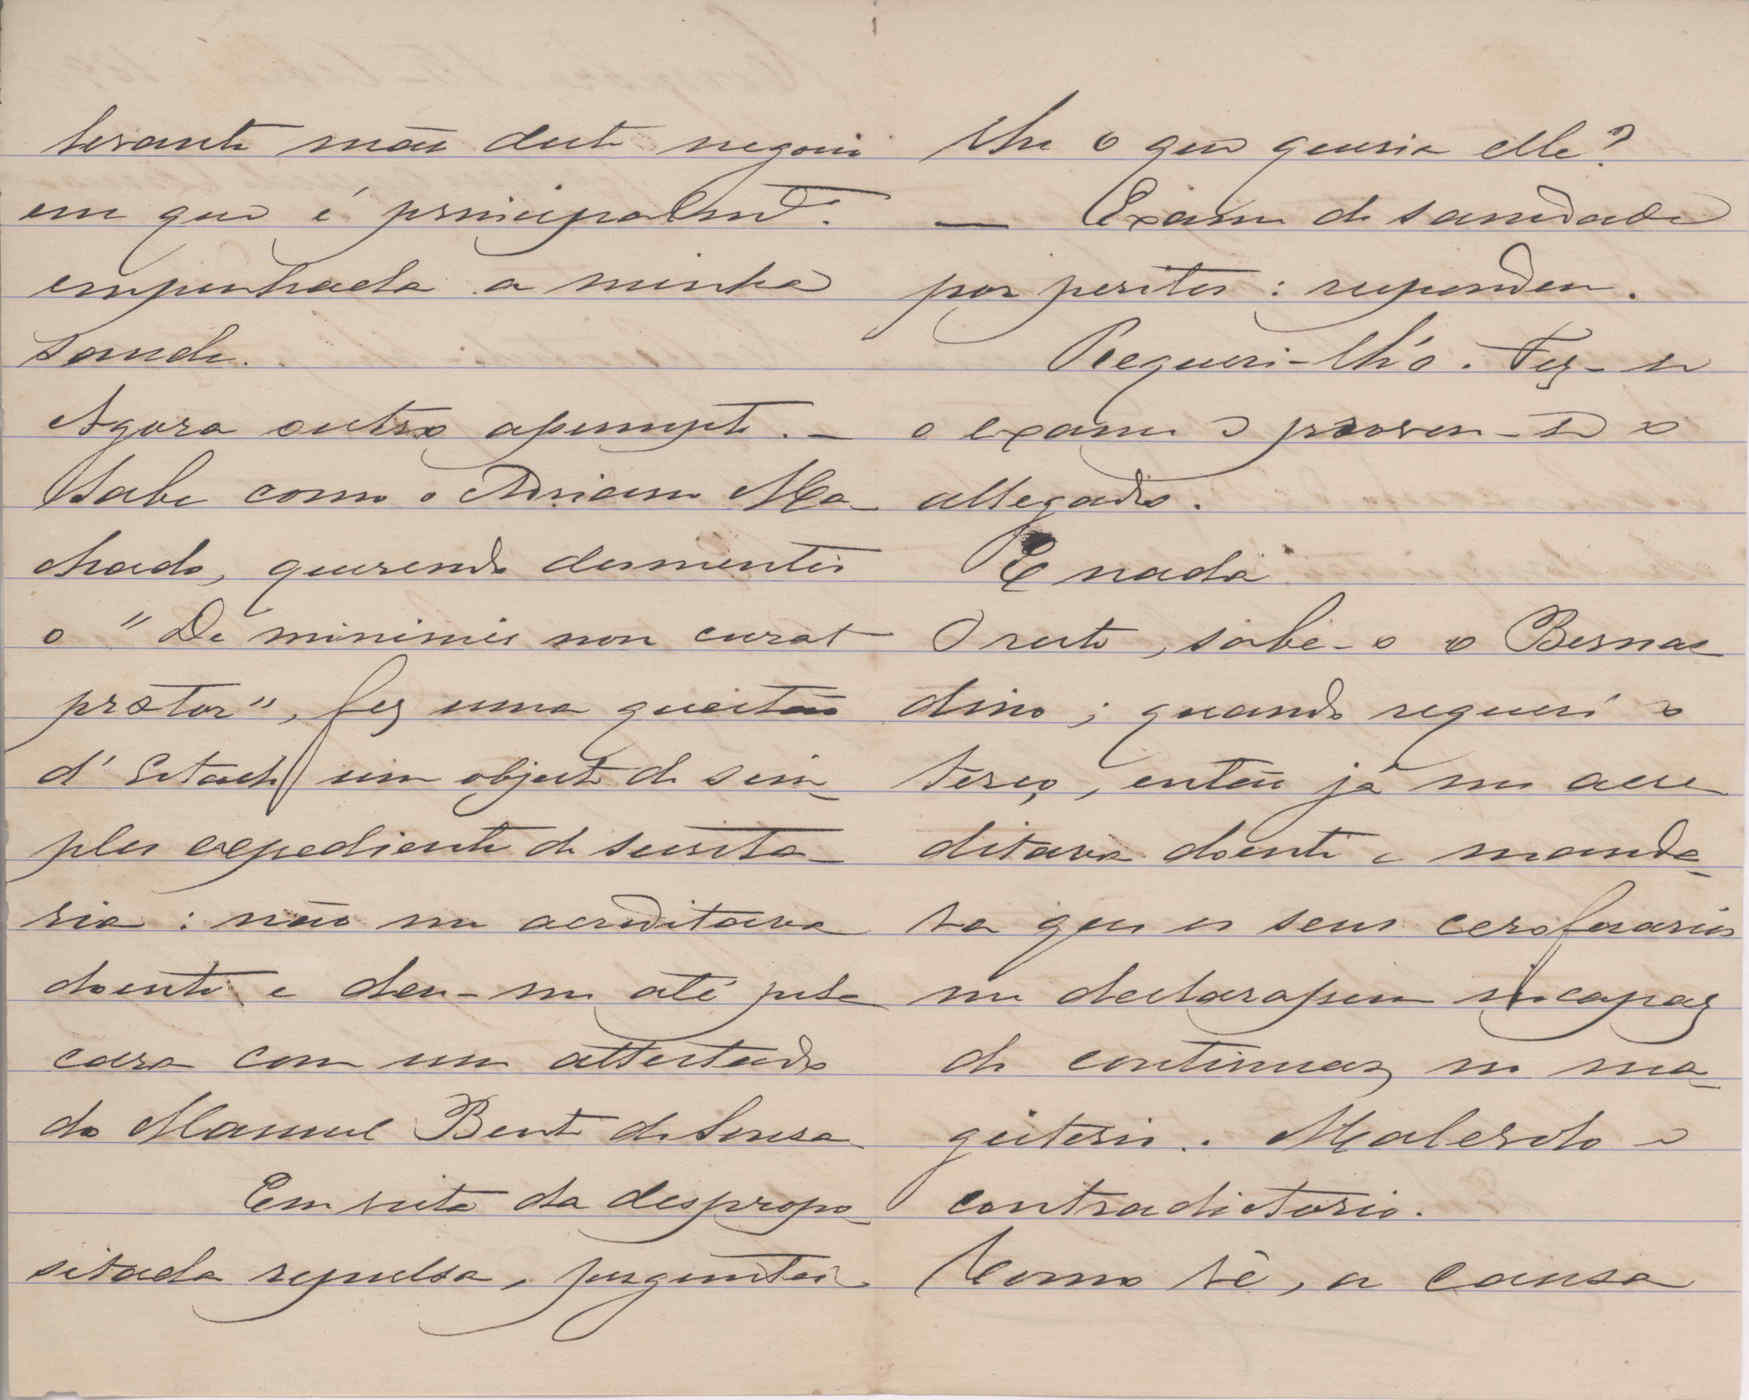 levante mão deste negocio
em que é principalmte.
empenhada a minha
saude.
Agora outro assumpto. —
Sabe como o Adriano Ma-
chado, querendo desmentir
o "De minimis non curat
prætor", fez uma questão
d'Estado um objecto de sim-
ples expediente de secreta-
ria: não me acreditava
doente e deu-me até pela
cara com um attestado
do Manuel Bento de Sousa.
Em vista da despropo-
sitada repulsa, perguntei-
lhe o que queria elle?
— Exame de sanidade
por peritos: respondeu.
Requeri-lh'o. Fez-se
o exame e provou-se o
allegado.
E nada
O resto, sabe-o o Bernar
dino; quando requeri o
terço, então já me acre
ditava doente e manda-
va que os seus ceroferarios
me declarassem incapaz
de continuar no ma-
gisterio. Malevolo e
contradictorio.
Como vê, a causa